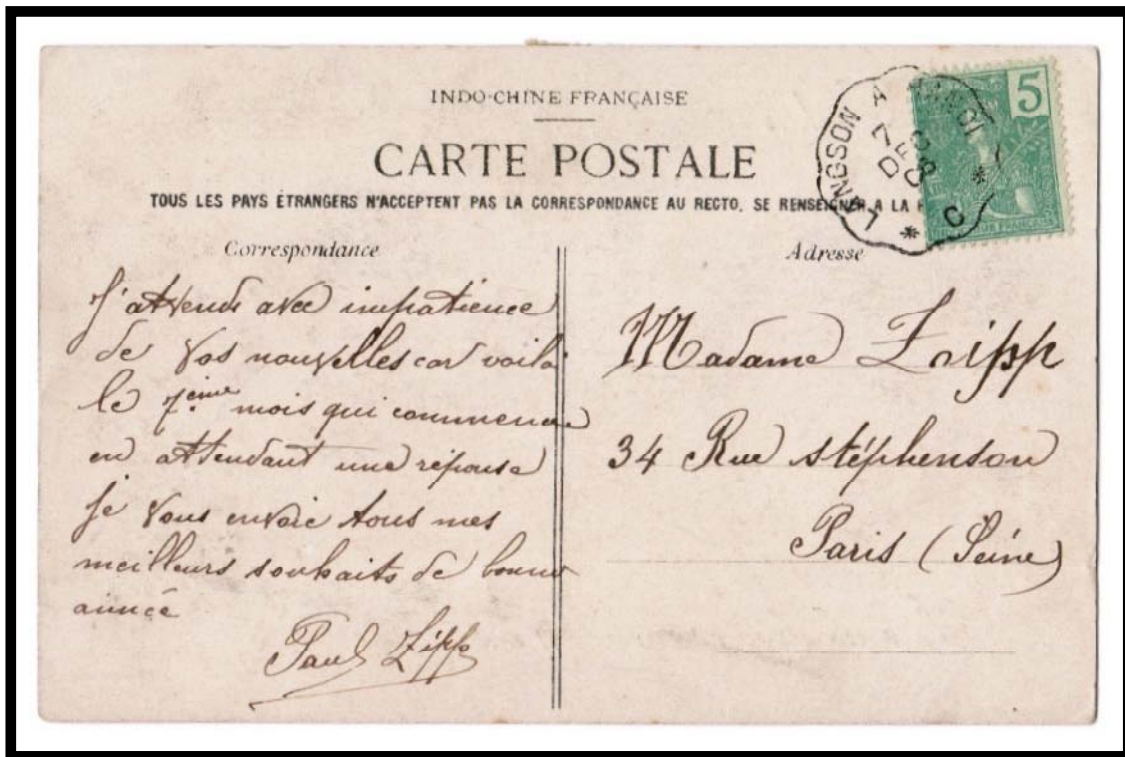 INDO-CHINE FRANÇAISE
CARTE POSTALE
TOUS LES PAYS ÉTRANGERS N'ACCEPTENT PAS LA CORRESPONDANCE AU RECTO. SE RENSEIGNER A LA
5
LANGSON A HANOI
7
DEC
08
C
Correspondance
J'attends avec impatience
de Vos nouvelles car voila
le 7eme mois qui commence
en attendant une réponse
je Vous envoie tous mes
meilleurs souhaits de bonne
année
Paul Zipp
Adresse
Madame Zipp
34 Rue stéphenson
Paris (Seine)